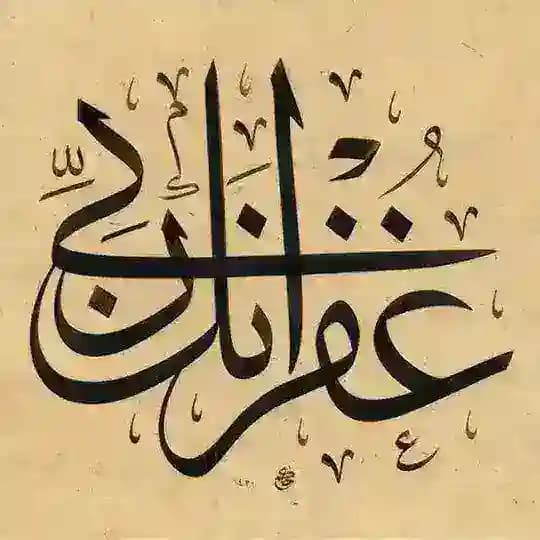 غفرانك ربي